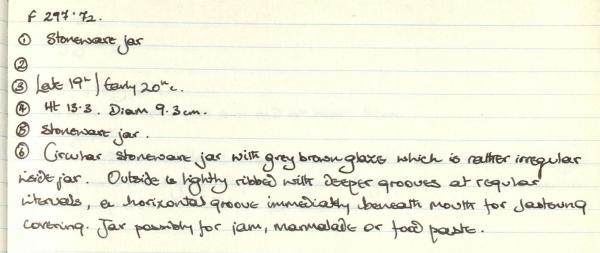 F 297.72.
① Stoneware jar
②
③ Late 19th / Early 20th c.
④ Ht 13.3. Diam 9.3cm.
⑤ Stoneware jar.
⑥ Circular stoneware jar with grey brown glaze which is rather irregular
inside jar. Outside is lightly ribbed with deeper grooves at regular
intervals, a horizontal groove immediately beneath mouth for fastening
covering. Jar possibly for jam, marmalade or food paste.